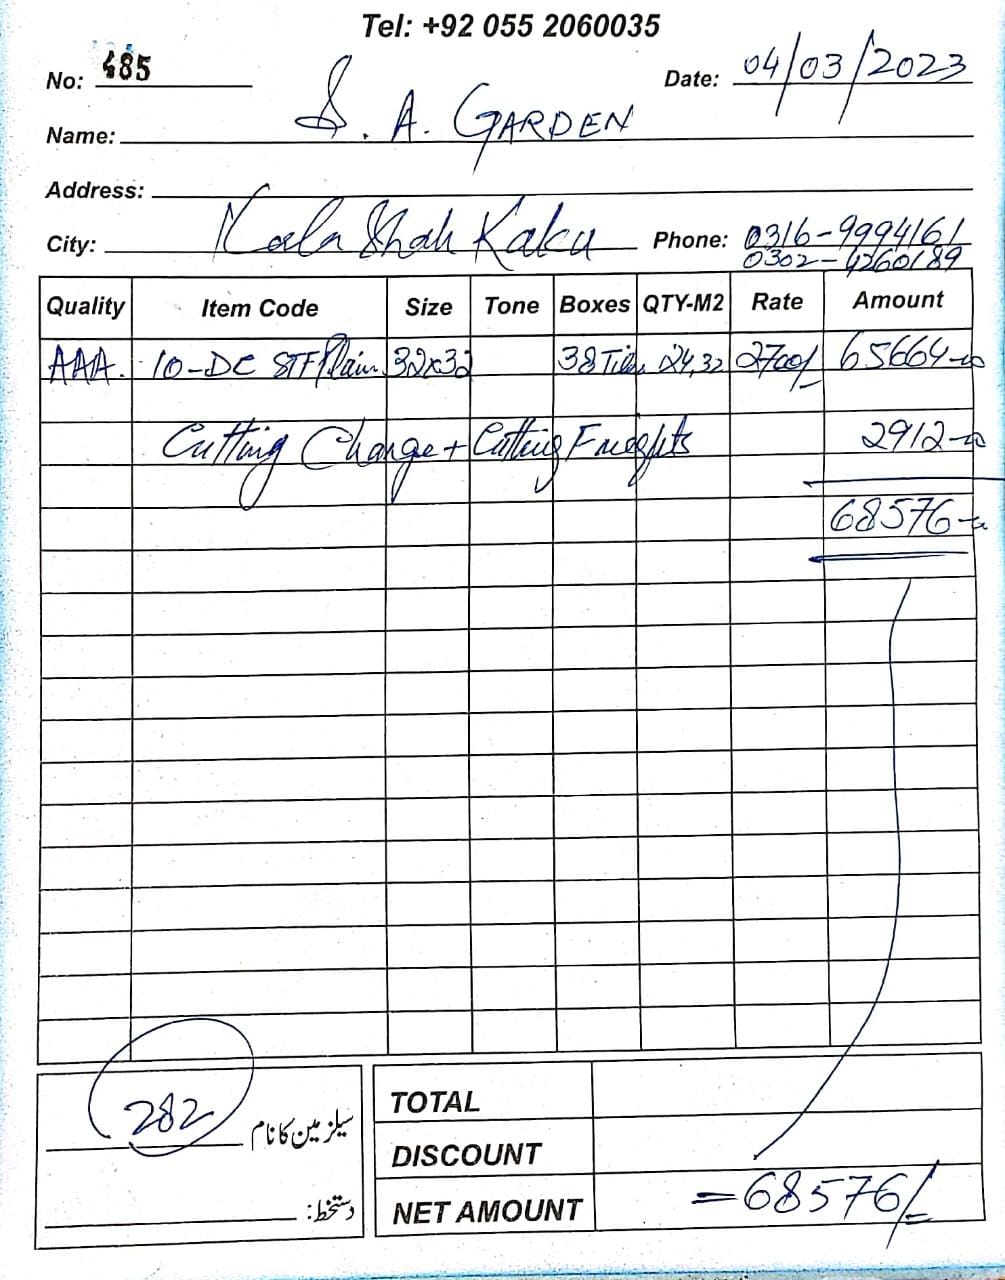 Tel: +92 055 2060035
No: 485 Date: 04/03/2023
Name: S. A. GARDEN
Address:
City: Kala Shah Kaku Phone: 0316-9994161
0302-4260189
Quality Item Code Size Tone Boxes QTY-M2 Rate Amount
AAA. 10-DC STF Plain 32x32 38 Tiles 24,32 2700/- 65664-00
Cutting Charge + Cutting Freights 2912-00
68576-00
282 سیلز مین کا نام
TOTAL
DISCOUNT
دستخط:
NET AMOUNT =68576/=